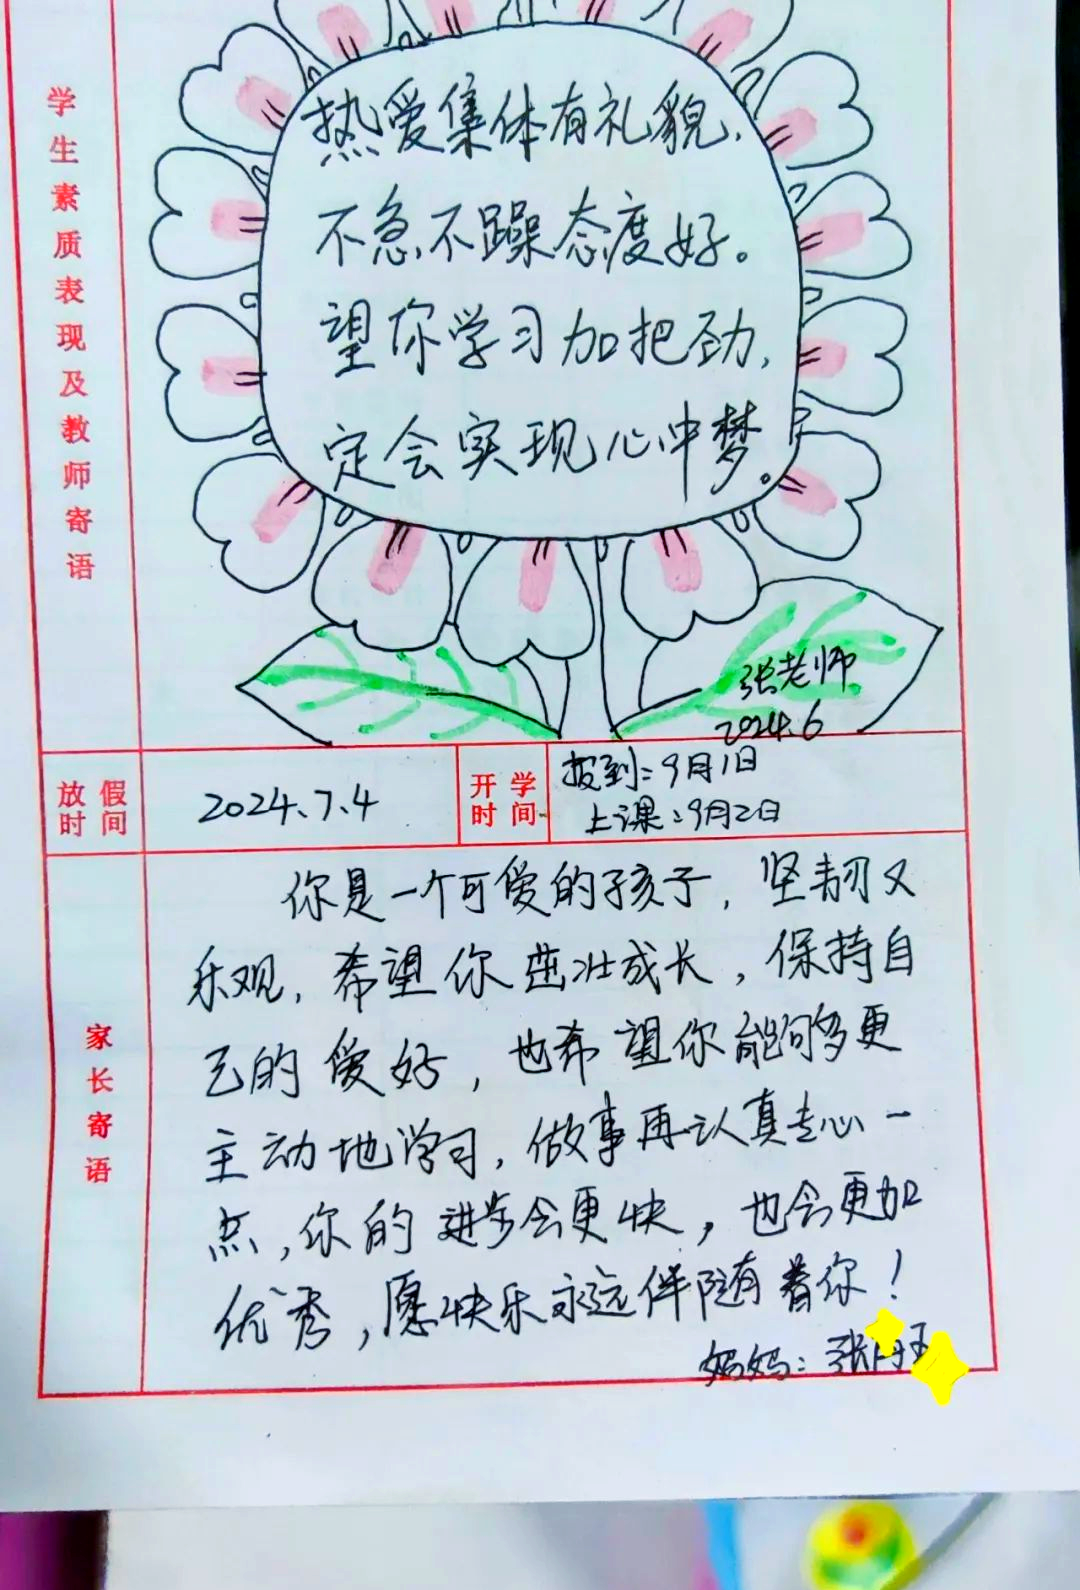 学生素质表现及教师寄语
热爱集体有礼貌,
不急不躁态度好。
望你学习加把劲,
定会实现心中梦。
张老师
2024.6
放假时间
2024.7.4
开学时间
报到:9月1日
上课:9月2日
家长寄语
你是一个可爱的孩子,坚韧又
乐观,希望你茁壮成长,保持自
己的爱好,也希望你能够多更
主动地学习,做事再认真走心一
点,你的进步会更快,也会更加
优秀,愿快乐永远伴随着你!
妈妈:张